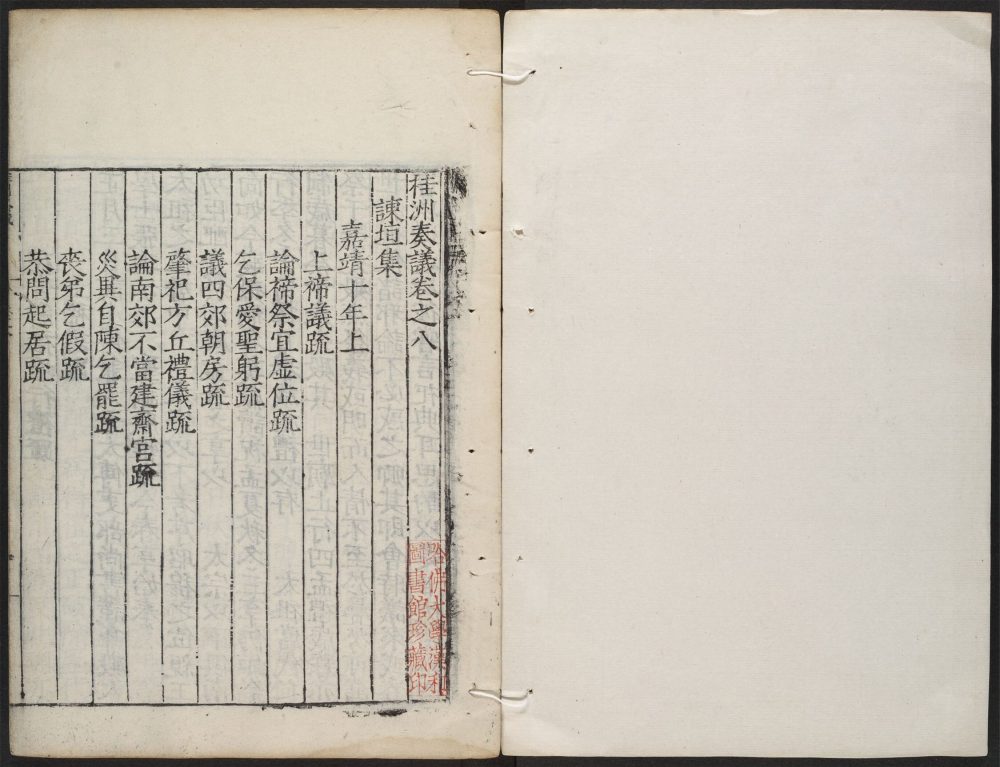 桂洲奏議卷之八
諫垣集
嘉靖十年上
上禘議疏
論禘祭宜虛位疏
乞保愛聖躬疏
議四郊朝房疏
肇祀方丘禮儀疏
論南郊不當建齋宮疏
災異自陳乞罷疏
喪弟乞假疏
恭問起居疏
哈佛大學漢和
圖書館珍藏印